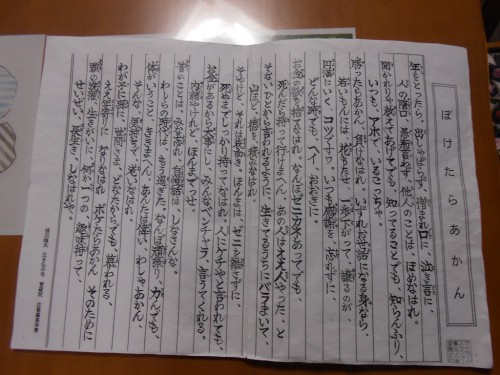 ぼけたらあかん
年をとったら、出しゃばらず、憎まれ口に、泣き言に、
人の陰口、愚痴言わず、他人のことは、ほめなはれ。
聞かれりゃ教えてあげてでも、知ってることでも、知らんふり、
いつも、アホで、いるこっちゃ。
勝ったらあかん、負けなはれ、いずれお世話になる身なら、
若いもんには、花もたせ、一歩下がって、譲るのが、
円満にいく、コツですわ。いつも感謝を、忘れずに、
どんな時でも、ヘイ、おおきに。
お金の欲を捨てなはれ、なんぼゼニカネあってでも、
死んだら持って行けまへん。あの人はええ人やった、と
そないひとから言われるように、生きてるうちにバラまいて、
山ほど徳を積みなはれ。
そやけど、それは表向き、ほんまは、ゼニを離さずに、
死ぬまでしっかり持ってなはれ。人にケチやと言われても、
お金があるから大事にし、みんなベンチャラ、言うてくれる。
内緒やけれど、ほんまでっせ。
昔のことは、みな忘れ、自慢話は、しなさんな、
わしらの時代は、もう過ぎた、なんぼ頑張り、力んでも、
体がいうこと、ききまへん。あんたは偉い、わしゃあかん、
そんな気持ちで、おいなはれ。
わが子に孫に、世間さま、どなたからでも、慕われる、
ええ年寄りに、なりなはれ。ボケたらあかん、そのために
頭の洗濯、生きがいに、何か一つの、趣味持って、
せいぜい、長生き、しなはれや。